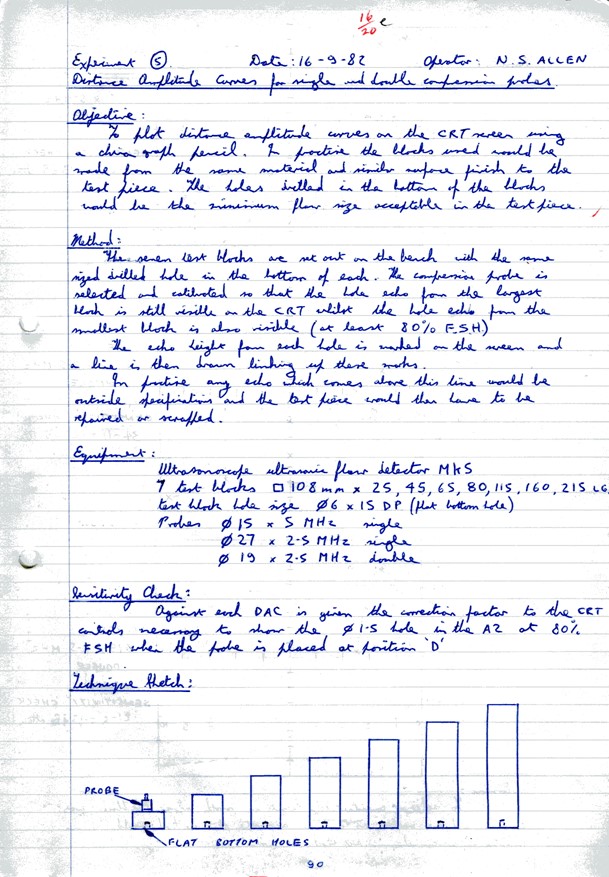 16
20
Experiment 5. Date: 16-9-82 Operator: N.S. ALLEN
Distance Amplitude Curves for single and double compression probes.
Objective:
To plot distance amplitude curves on the CRT screen using
a china graph pencil. In practice the blocks used would be
made from the same material and similar surface finish to the
test piece. The holes drilled in the bottom of the blocks
would be the minimum flaw size acceptable in the test piece.
Method:
The seven test blocks are set out on the bench with the same
sized drilled hole in the bottom of each. The compression probe is
selected and calibrated so that the hole echo from the largest
block is still visible on the CRT whilst the hole echo from the
smallest block is also visible (at least 80% F.S.H)
The echo height from each hole is marked on the screen and
a line is then drawn linking up these marks.
In practice any echo which comes above this line would be
outside specification and the test piece would then have to be
repaired or scrapped.
Equipment:
Ultrasonoscope ultrasonic flaw detector Mk5
7 test blocks □ 108 mm x 25, 45, 65, 80, 115, 160, 215 LG.
test block hole size Ø6 x 15 DP (flat bottom hole)
Probes Ø 15 x 5 MHz single
Ø 27 x 2-5 MHz single
Ø 19 x 2-5 MHz double
Sensitivity Check:
Against each DAC is given the correction factor to the CRT
controls necessary to show the Ø 1-5 hole in the A2 at 80%
FSH when the probe is placed at position 'D'
Technique Sketch:
PROBE
FLAT BOTTOM HOLES
90